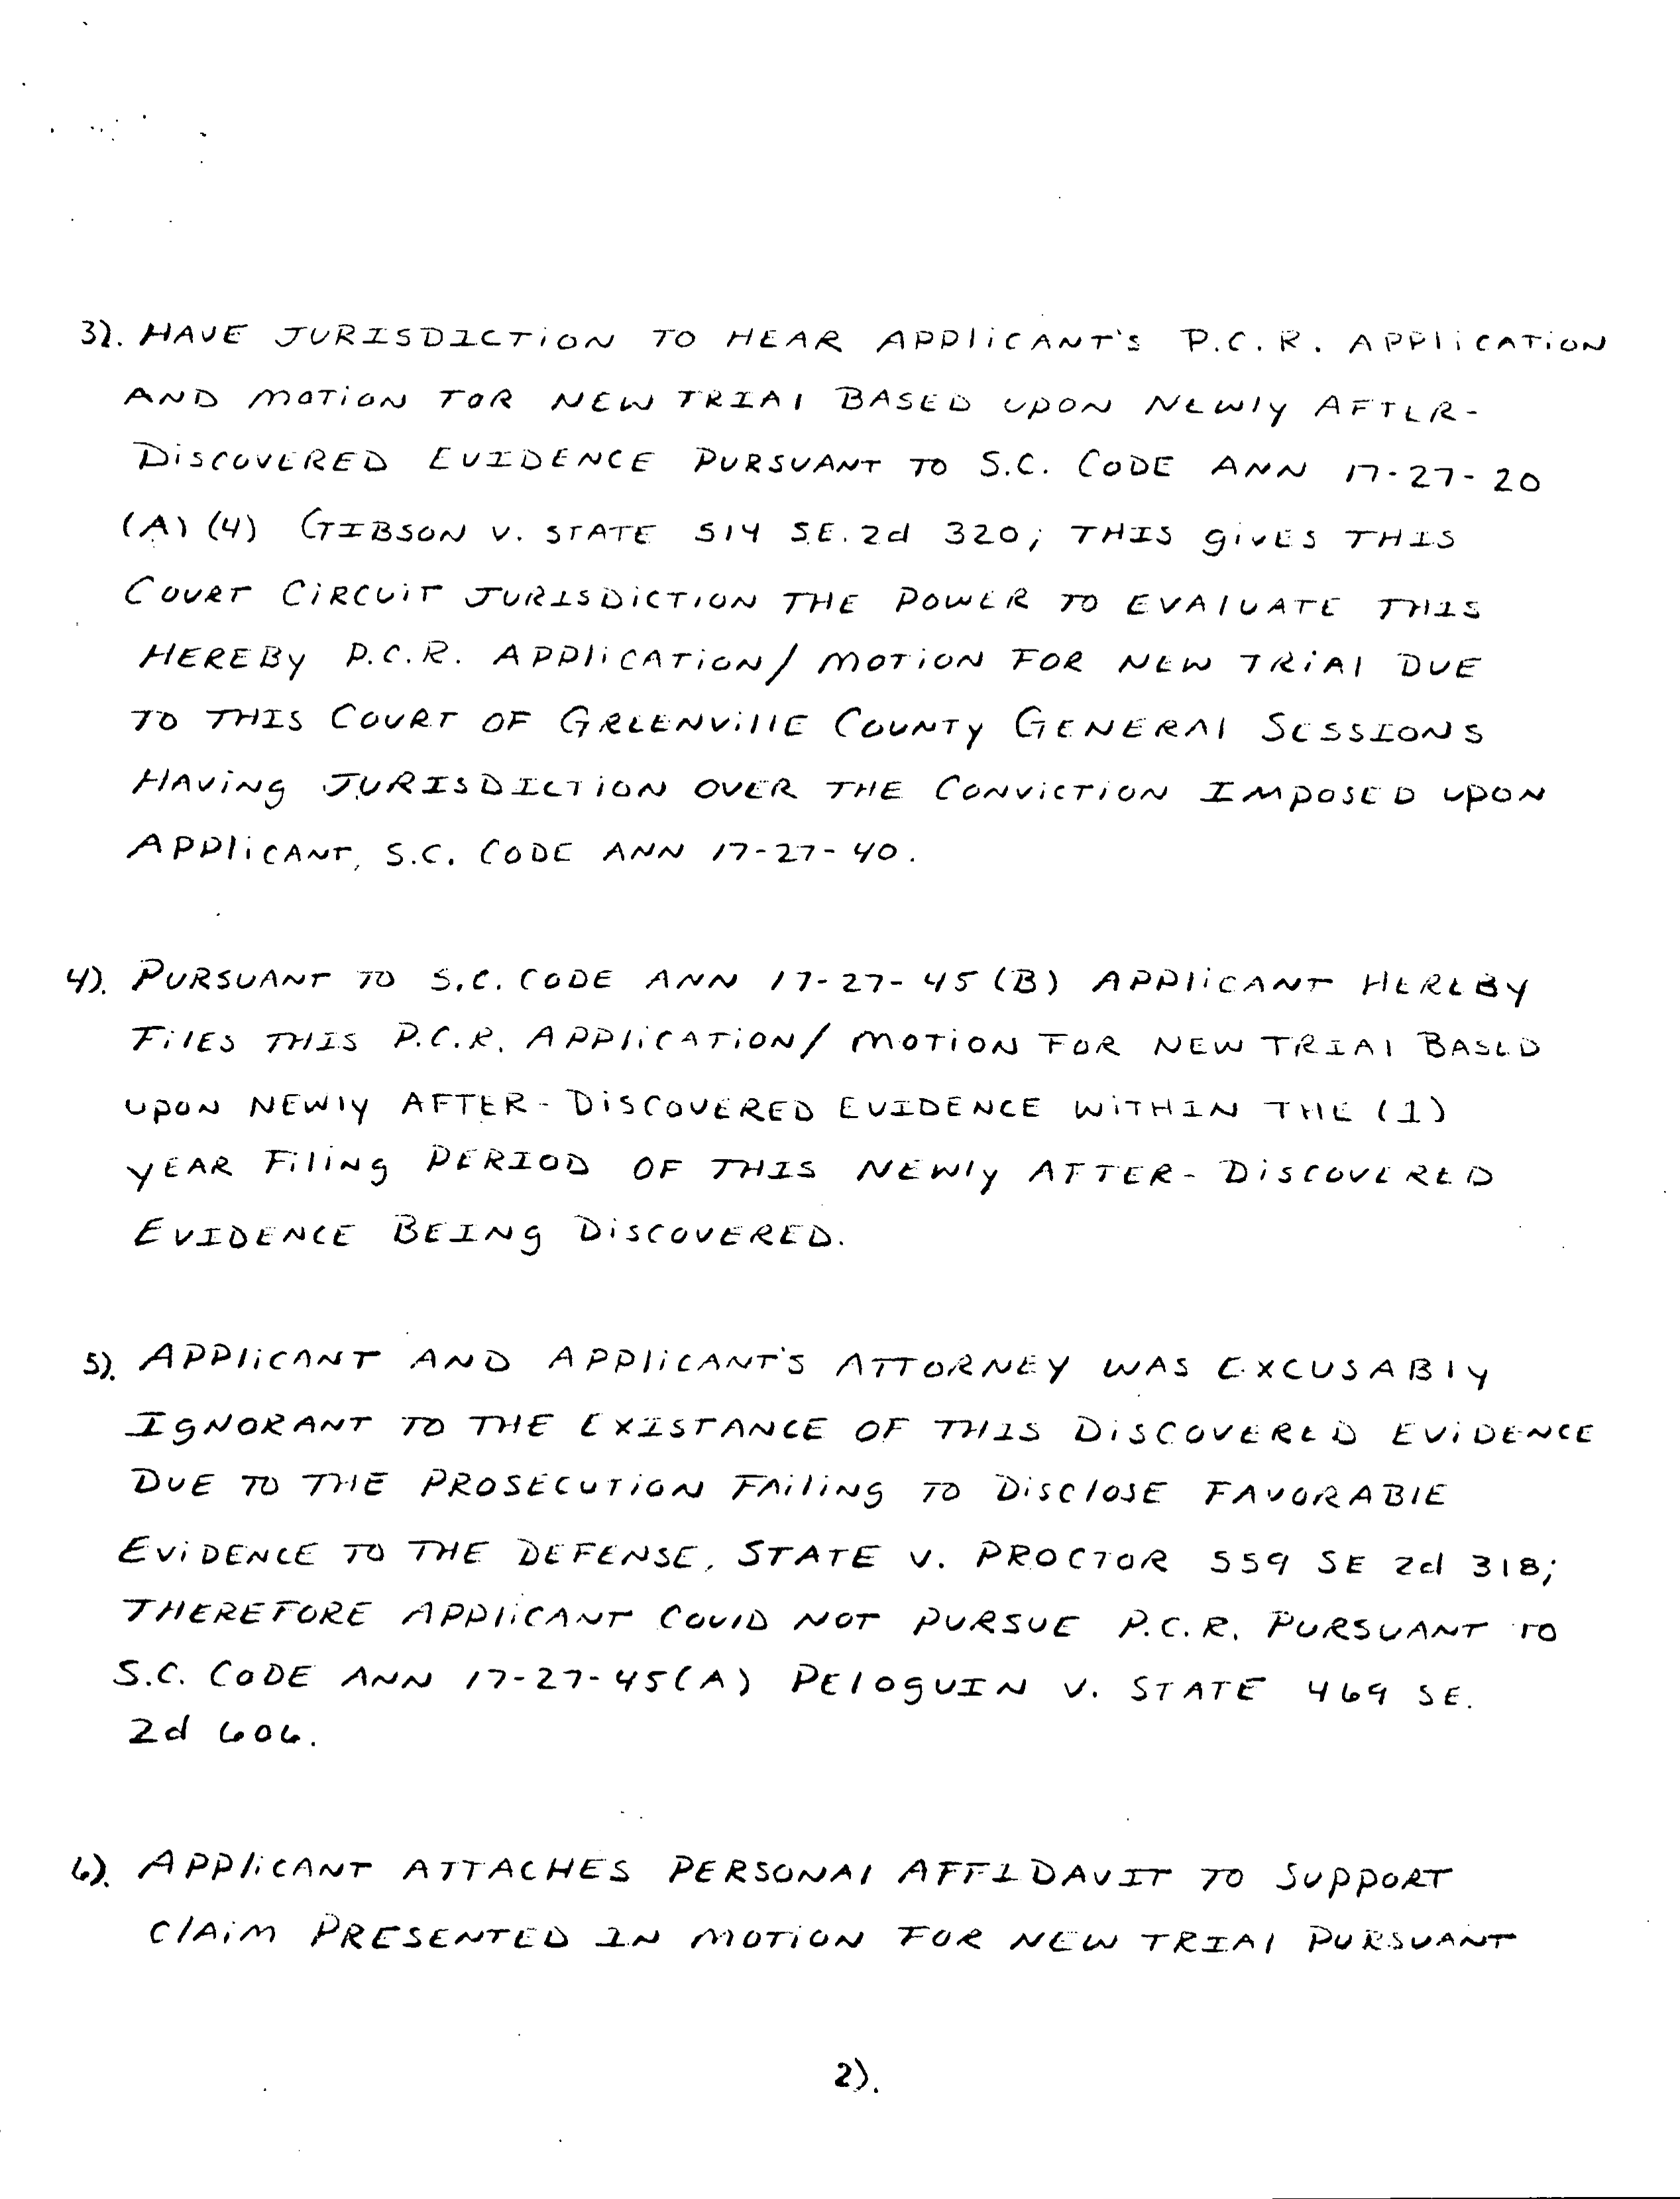 3). HAVE JURISDICTION TO HEAR APPLICANT'S P.C.R. APPLICATION
AND MOTION FOR NEW TRIAL BASED UPON NEWLY AFTER-
DISCOVERED EVIDENCE PURSUANT TO S.C. CODE ANN 17-27-20
(A) (4) GIBSON V. STATE 514 S.E. 2d 320; THIS GIVES THIS
COURT CIRCUIT JURISDICTION THE POWER TO EVALUATE THIS
HEREBY P.C.R. APPLICATION/ MOTION FOR NEW TRIAL DUE
TO THIS COURT OF GREENVILLE COUNTY GENERAL SESSIONS
HAVING JURISDICTION OVER THE CONVICTION IMPOSED UPON
APPLICANT, S.C. CODE ANN 17-27-40.
4). PURSUANT TO S.C. CODE ANN 17-27-45 (B) APPLICANT HEREBY
FILES THIS P.C.R. APPLICATION/ MOTION FOR NEW TRIAL BASED
UPON NEWLY AFTER-DISCOVERED EVIDENCE WITHIN THE (1)
YEAR FILING PERIOD OF THIS NEWLY AFTER-DISCOVERED
EVIDENCE BEING DISCOVERED.
5). APPLICANT AND APPLICANT'S ATTORNEY WAS EXCUSABLY
IGNORANT TO THE EXISTANCE OF THIS DISCOVERED EVIDENCE
DUE TO THE PROSECUTION FAILING TO DISCLOSE FAVORABLE
EVIDENCE TO THE DEFENSE, STATE V. PROCTOR 559 SE 2d 318;
THEREFORE APPLICANT COULD NOT PURSUE P.C.R. PURSUANT TO
S.C. CODE ANN 17-27-45(A) PELOGUIN V. STATE 469 SE.
2d 606.
6). APPLICANT ATTACHES PERSONAL AFFIDAVIT TO SUPPORT
CLAIM PRESENTED IN MOTION FOR NEW TRIAL PURSUANT
2).